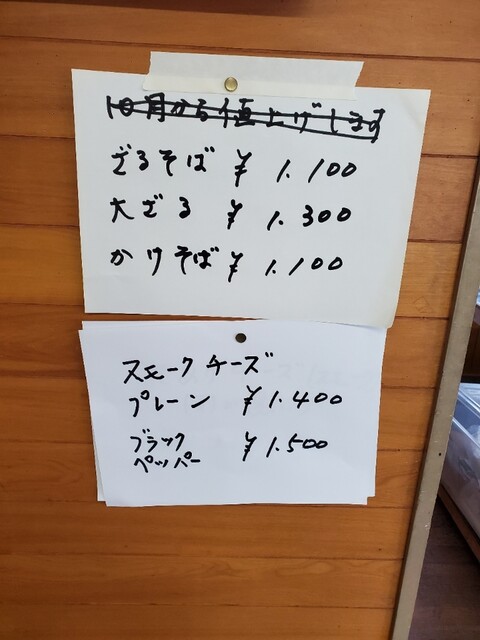 10月から値上げします
ざるそば ¥ 1.100
大ざる ¥ 1.300
かけそば ¥ 1.100
スモークチーズ
プレーン ¥1.400
ブラック ¥1.500
ペッパー